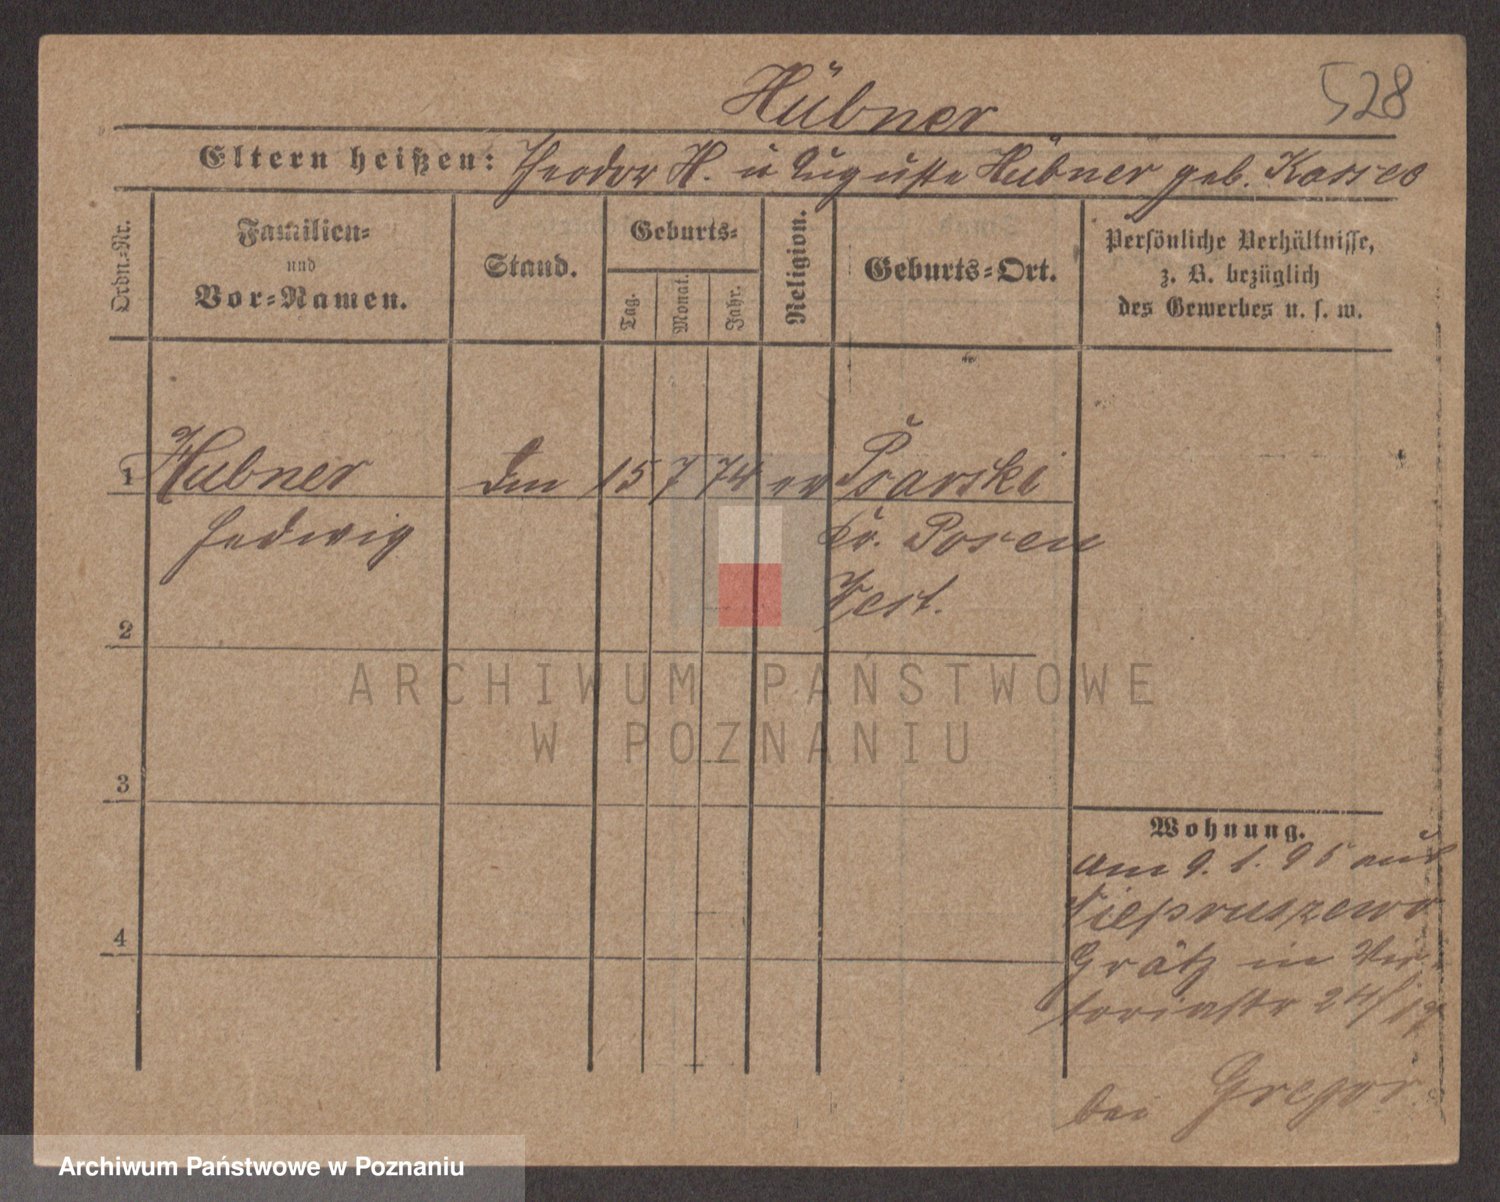 528
Hübner
Eltern heißen: Theodor H. u Auguste Hübner geb.
Ordn.-Nr.
Familien-
und
Vor-Namen.
Stand.
Geburts-
Tag.
Monat.
Jahr.
Religion.
Geburts-Ort.
Persönliche Verhältnisse,
z. B. bezüglich
des Gewerbes u. s. w.
1 Hübner 15 7 74 ev Psarski
Hedwig Kr. Posen
West.
2
3
4
Wohnung.
am 9. 1. 95 aus
Grätz in Vic-
toriastr 24/
bei Gregor
ARCHIWUM PAŃSTWOWE
W POZNANIU
Archiwum Państwowe w Poznaniu